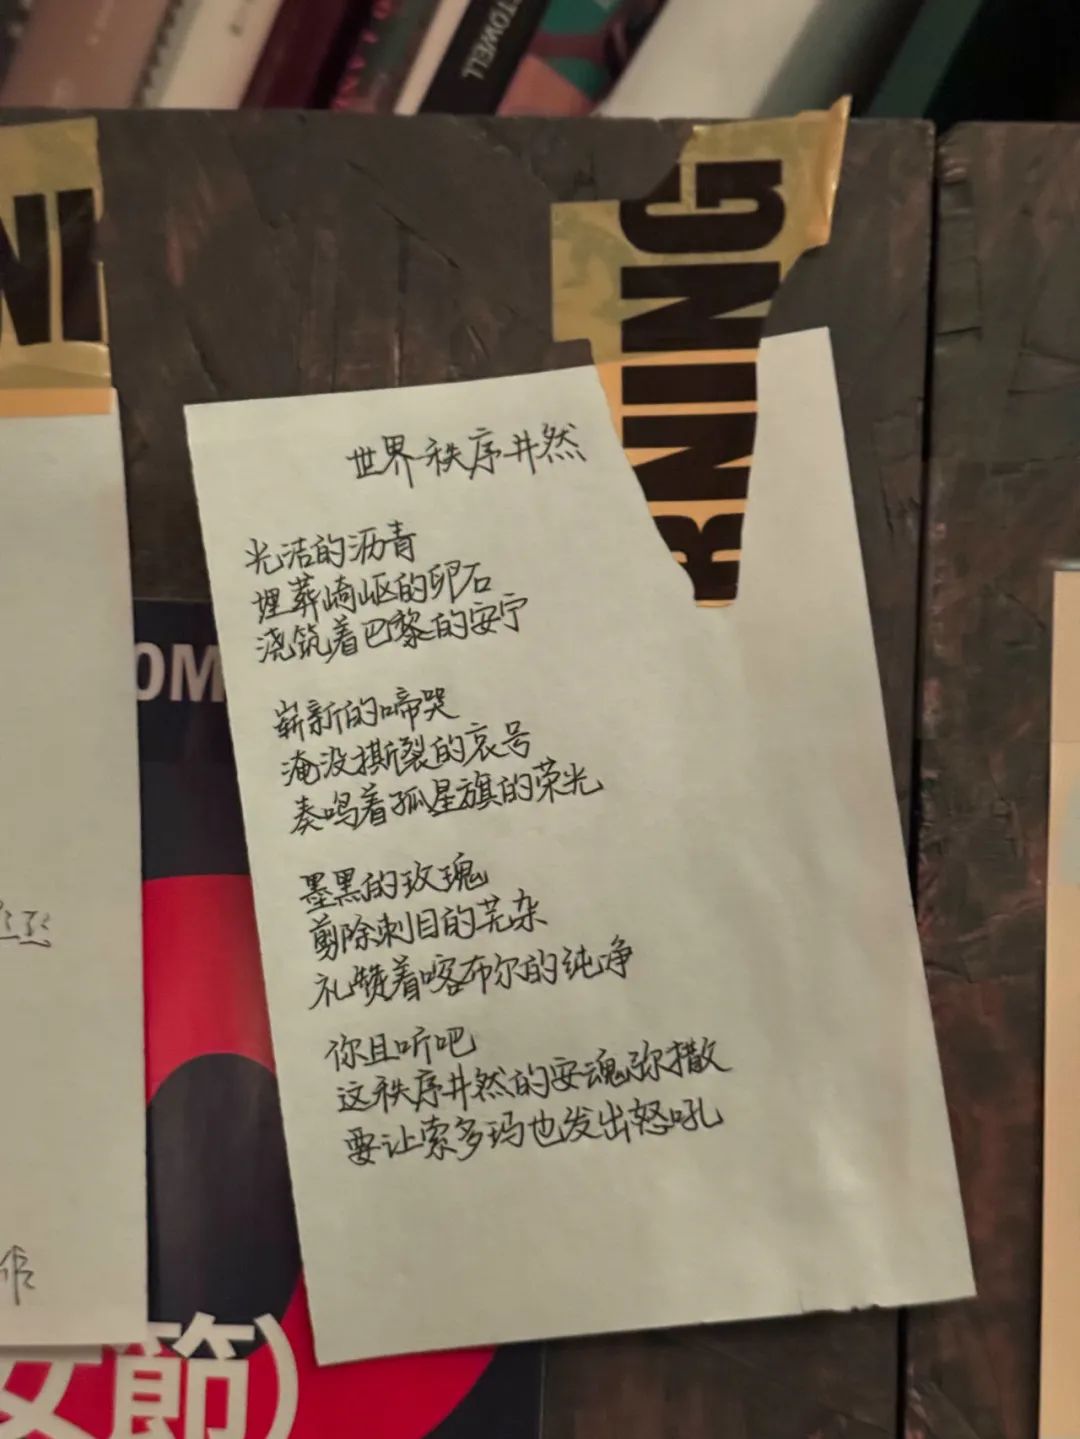 TOWELL
NI
RNING
世界秩序井然
光洁的沥青
埋葬崎岖的卵石
浇筑着巴黎的安宁
崭新的啼哭
淹没撕裂的哀号
奏鸣着孤星旗的荣光
墨黑的玫瑰
剪除刺目的芜杂
礼赞着喀布尔的纯净
你且听吧
这秩序井然的安魂弥撒
要让索多玛也发出怒吼
OM
女節)